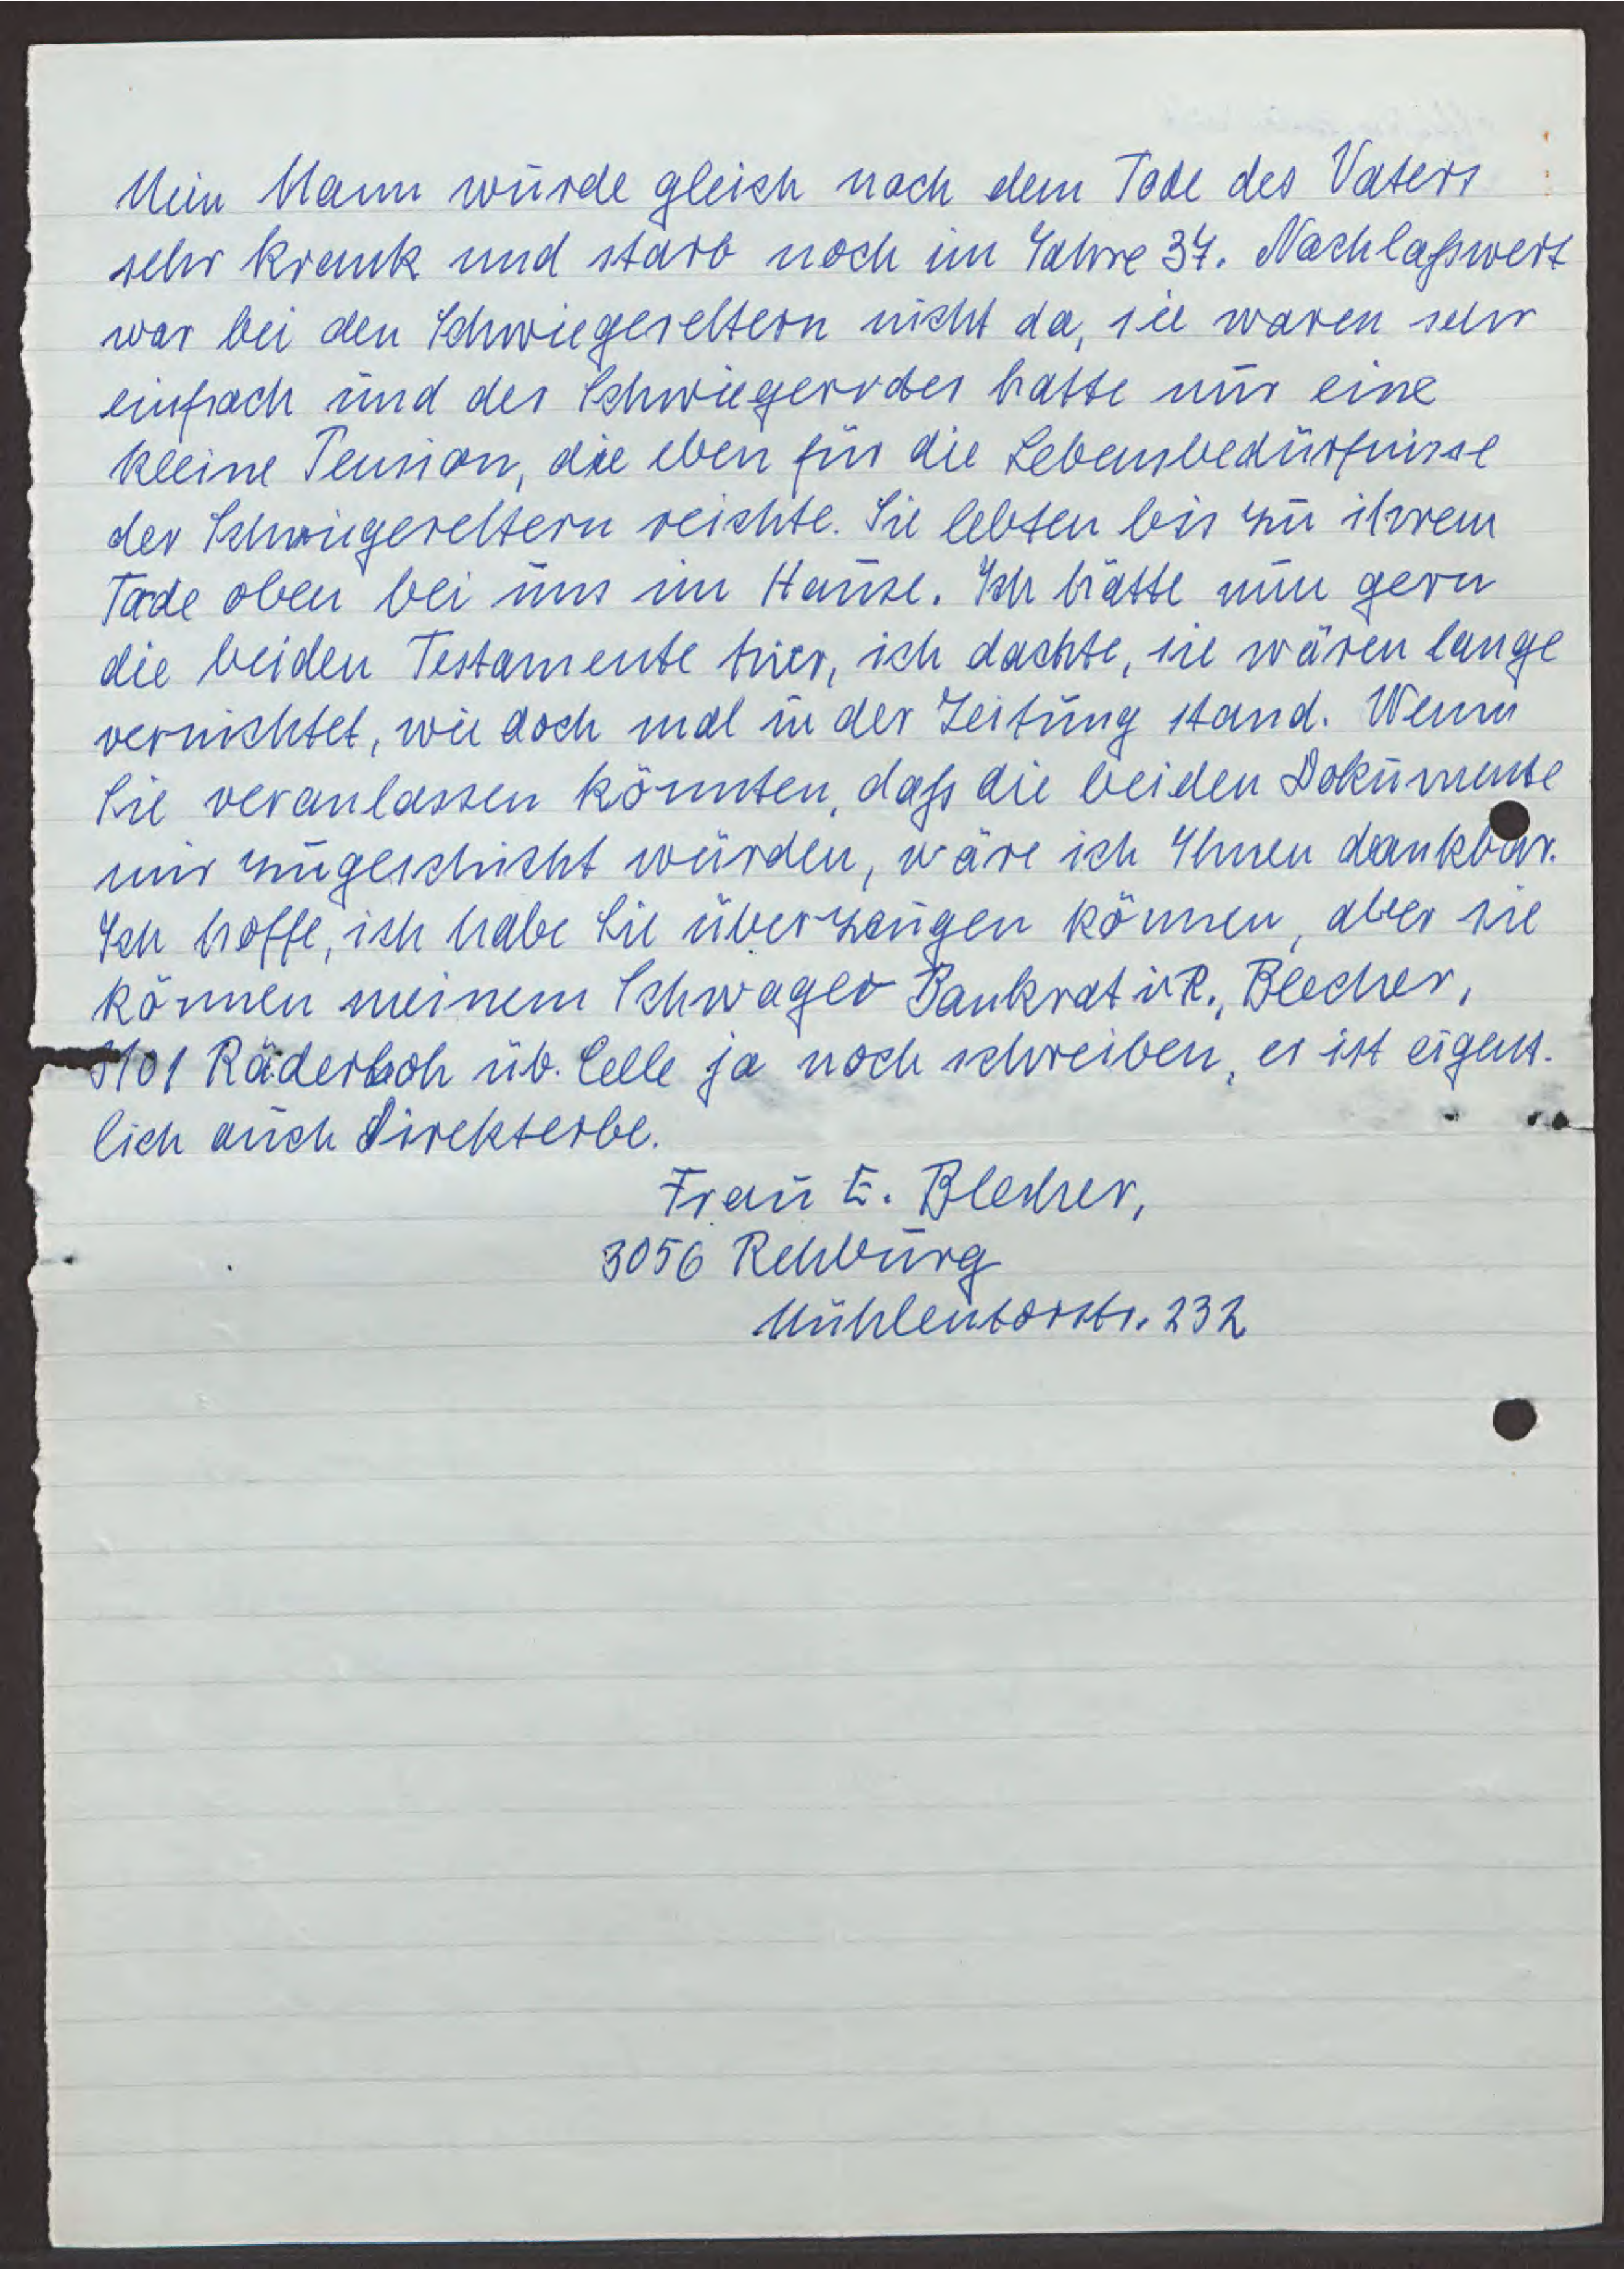 Mein Mann wurde gleich nach dem Tode des Vaters
sehr krank und starb noch im Jahre 37. Nachlaßwert
war bei den Schwiegereltern nicht da, sie waren sehr
einfach und der Schwiegervater hatte nur eine
kleine Pension, die eben für die Lebensbedürfnisse
der Schwiegereltern reichte. Sie lebten bis zu ihrem
Tode oben bei uns im Hause. Ich hätte nun gern
die beiden Testamente hier, ich dachte, sie wären lange
vernichtet, wie doch mal in der Zeitung stand. Wenn
Sie veranlassen könnten, daß die beiden Dokumente
mir zugeschickt würden, wäre ich Ihnen dankbar.
Ich hoffe, ich habe Sie überzeugen können, aber sie
können meinem Schwager Bankrat i. R., Blecher,
3101 Räderloh üb. Celle ja noch schreiben, er ist eigent-
lich auch Direkterbe.
Frau E. Blecher,
3056 Rehburg
Mühlentorstr. 232